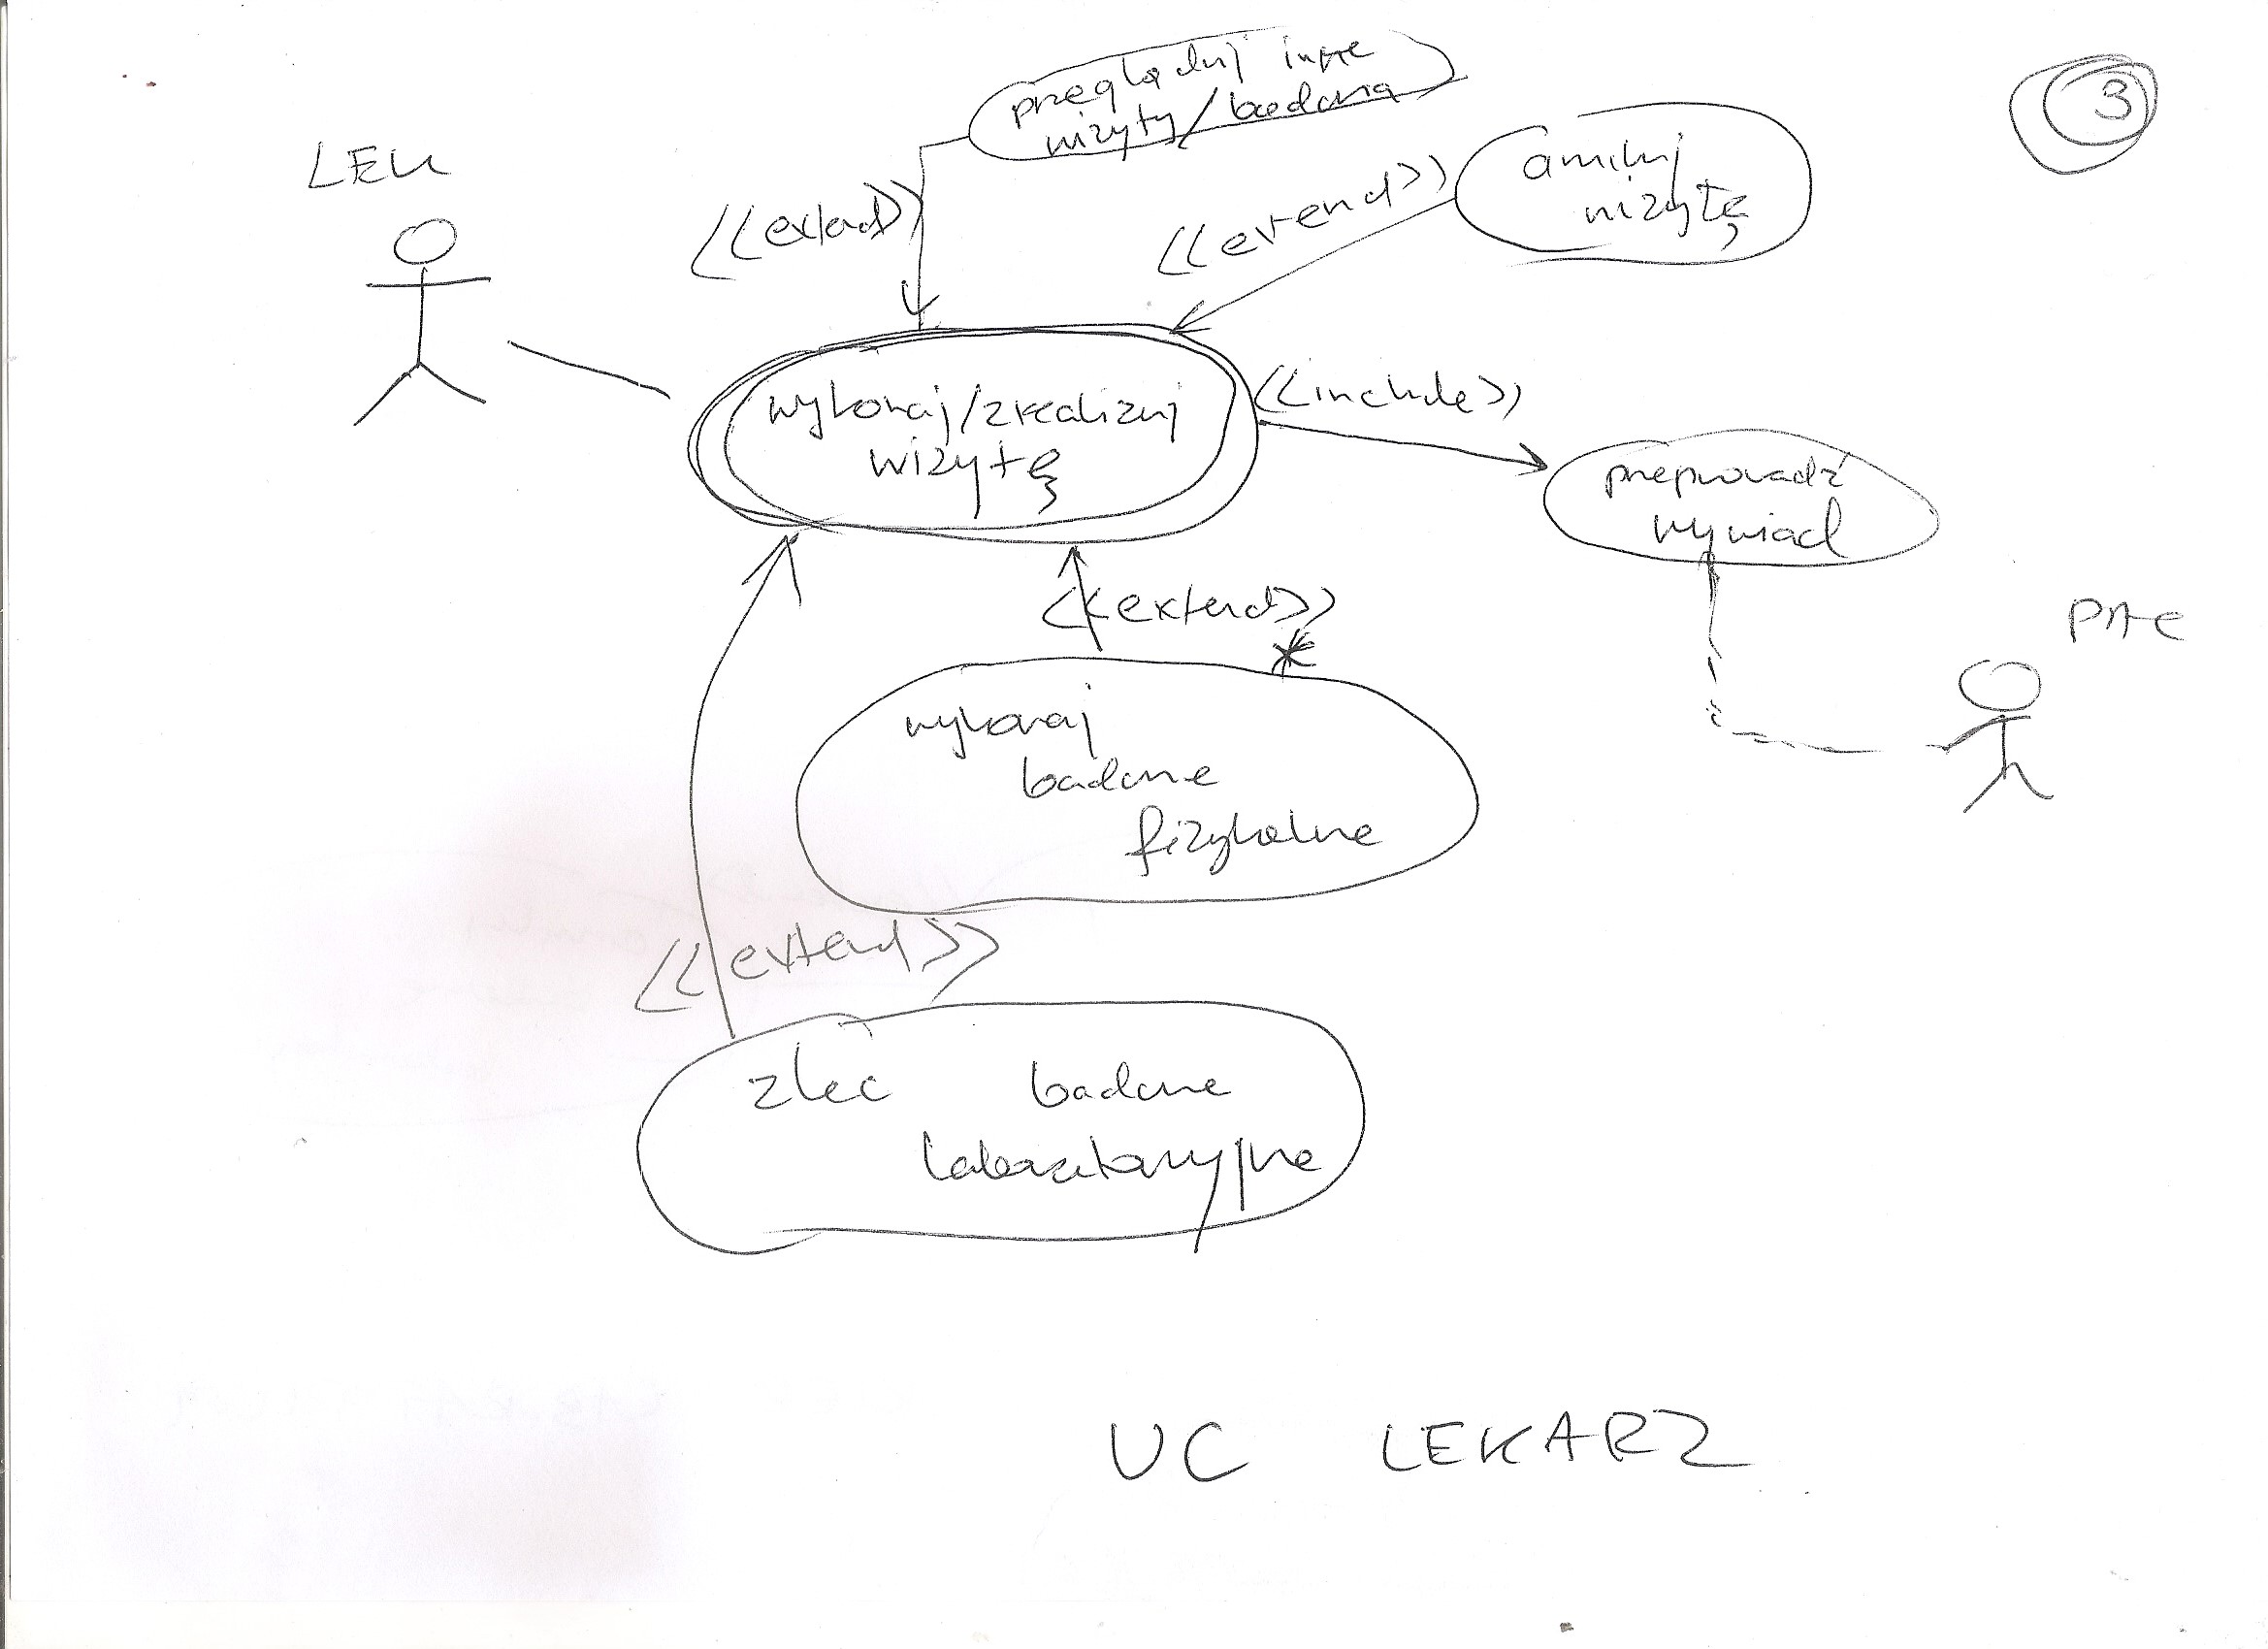 przeglądnij inne
wizyty/badania
3
LEK
<<extend>>
<<extend>>
anuluj
wizytę
wykonaj/zrealizuj
wizytę
<<include>>
przeprowadź
wywiad
<<extend>>
*
PAC
wykonaj
badanie
fizykalne
<<extend>>
zleć badanie
laboratoryjne
UC LEKARZ